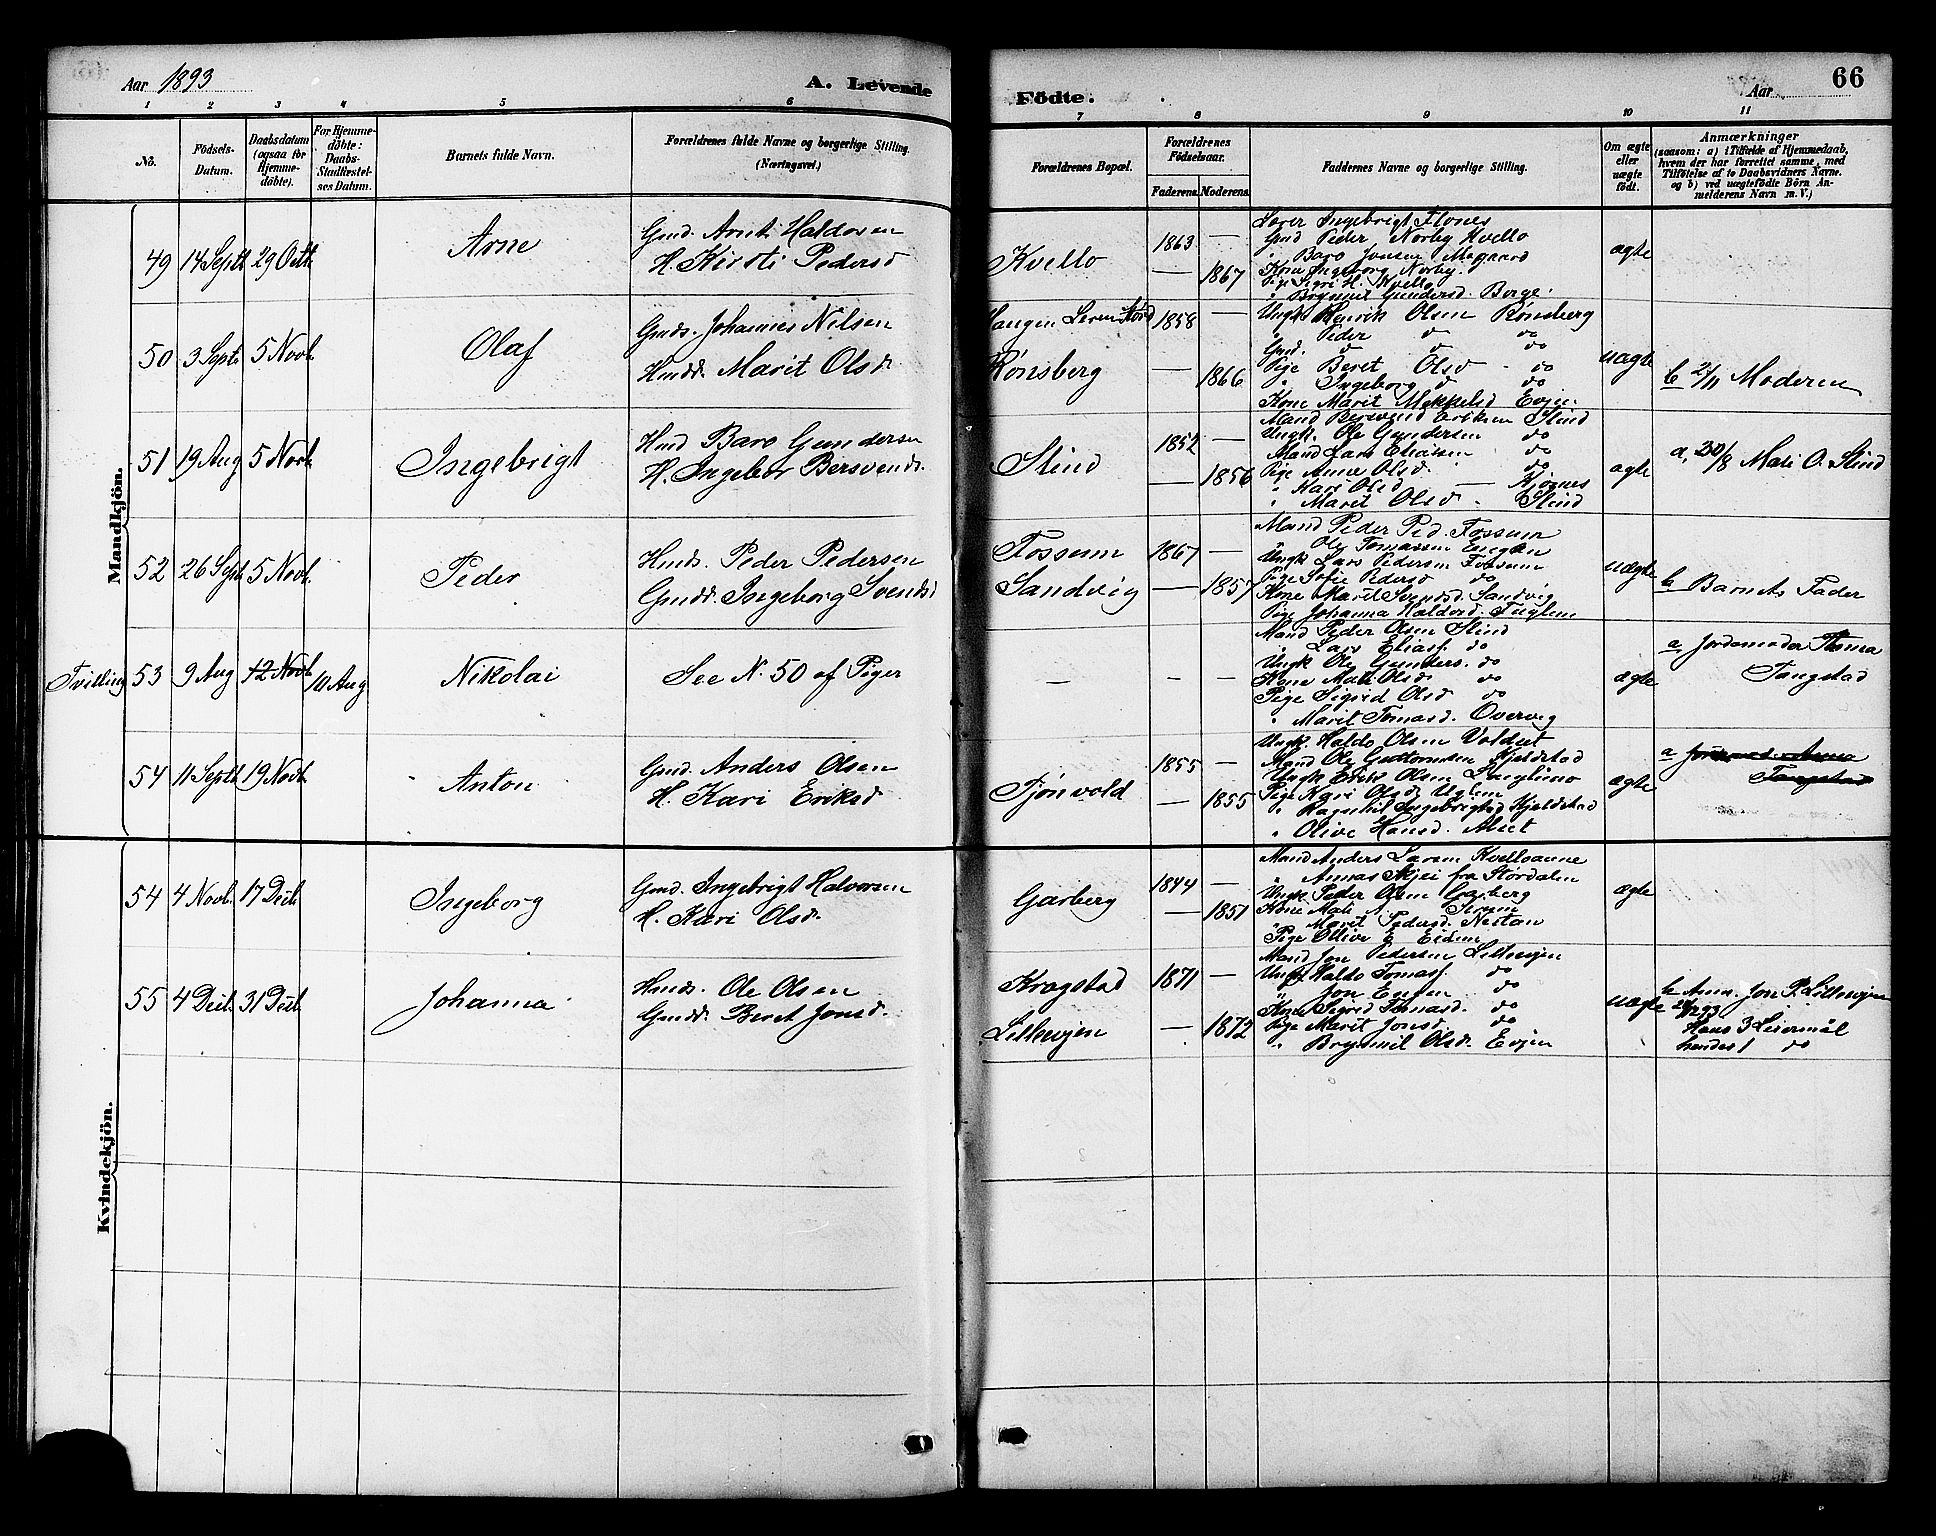 Aar 1893
A. Levende
Födte.
66
Aar
1 2 3 4 5 6 7 8 9 10 11
No.
Födsels-
Datum.
Daabsdatum
(ogsaa for
Hjemme-
döbte).
For Hjemme-
döbte:
Daabs-
Stadfæstel-
ses Datum.
Barnets fulde Navn.
Forældrenes fulde Navne og borgerlige Stilling.
(Næringsvei.)
Forældrenes Bopæl.
Forældrenes
Födselsaar.
Faderens. Moderens.
Faddernes Navne og borgerlige Stilling.
Om ægte
eller
uægte
födt.
Anmærkninger
(saasom: a) i Tilfælde af Hjemmedaab,
hvem der har forrettet samme, med
Tilföielse af to Daabsvidners Navne.
og b) ved uægtefödte Börn An-
melderens Navn m. V.)
Mandkjön.
49 14 Septb 29 Octb Arne
Gmd. Arnt Haldosen
H. Kirsti Pedersd
Kvello
1863 —
— 1867
Lærer Ingebrigt Flones
Gmd Peder Norby Kvello
" Baro Jonsen Mogaard
Kone Ingeborg Norby.
Pige Sigri H. Kvello
" Brynhil Gundersd. Borge.
ægte
50 3 Septb 5 Novb. Olaf
Gmds. Johannes Nilsen
Husd. Marit Olsd.
Rønsberg
1858 —
— 1866
Ungk Henrik Olsen Rönsberg
" Peder do do
Gmd. do do
Pige Beret Olsd do
" Ingeborg do do
Kone Marit Mikkelsd Evjen
uægte
b 2/11 Moderen
51 19 Aug 5 Novb. Ingebrigt
Hmd Baro Gundersen
H. Ingebor Bersvends.
Slind
1852 —
— 1856
Mand Bersvend Eriksen Slind
Ungk. Ole Gundersen do
Mand Lars Eliasen do
Pige Anne Olsd. do
" Kari Olsd — Kjösnes
" Marit Olsd. Slind
ægte
a, 20/8 Mali O. Slind
52 26 Septb 5 Novb. Peder
Husds. Peder Pedersen
Gmdd. Ingeborg Svendsd
Fossum
Sandvig
1867 —
— 1857
Mand Peder Ped. Fossum
" Ole Tomassen Engen
Ungk Lars Pedersen Fossum
Pige Sofie Pedersd do
Kone Marit Svendsd. Sandvig
Pige Johanna Haldosd. Fuglem
uægte
b Barnets Fader
Tvilling 53 9 Aug 12 Novb. 10 Aug Nikolai
See N. 50 af Piger
— — —
Mand Peder Olsen Slind
" Lars Eliass. do
Ungk Ole Gunders. do
Kone Mali Olsd do
Pige Sigrid Olsd do
" Marit Tomasd. Overvig
ægte
a Jordemoder Anna
Tangstad
54 11 Septb 19 Novb Anton
Gmd. Anders Olsen
H. Kari Eriksd
Tjönvold
1855 —
— 1855
Ungk. Haldo Olsen Voldset
Mand Ole Guttormsen Kjeldstad
Ungk Erik Olsen Langlimo
Pige Kari Olsd Uglem
" Ragnhil Ingebrigtsd Kjeldstad
" Olive Hansd. Aliet
ægte
a Jordemod. Anna
Tangstad
Kvindekjön.
54 4 Novb. 17 Decb. Ingeborg
Gmd. Ingebrigt Halvorsen
H. Kari Olsd.
Garberg
1844 —
— 1851
Mand Anders Larsen Kvelloanne
" Annas Skjei fra Stordalen
Ungk Peder Olsen Garberg
Kone Mali A.
" Marit Pedersd. Nestan
Pige Olive E. Eidem
ægte
55 4 Decb. 31 Decb. Johanna
Husds. Ole Olsen
Gmdd. Beret Jonsd.
Kragstad
Lillevjen
1871 —
— 1872
Mand Jon Pedersen Lillevjen
Ungk Haldo Tomass. do
" Jon Ensen do
Kone Sigrid Tomasd. do
Pige Marit Jonsd. do
" Brynhil Olsd. Evjen
uægte
b Anm. Jon P. Lillevjen
Hans 3 Leiermål
hendes 1 do